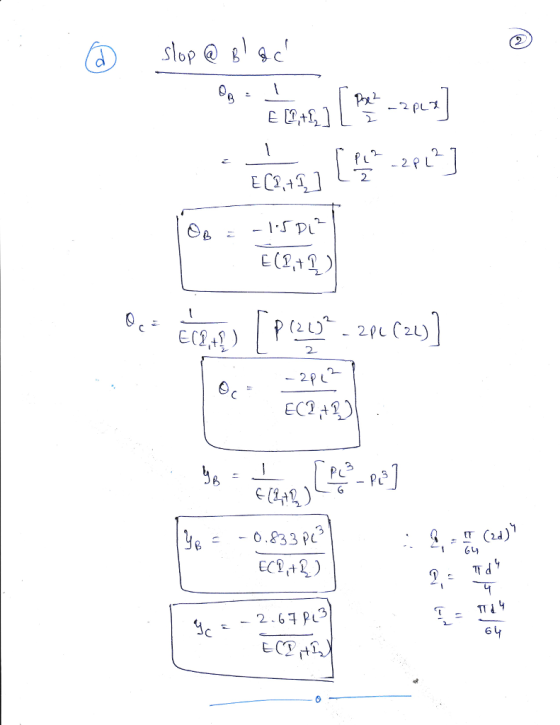 ②
ⓓ Slop @ B' & C'
θ_B = 1/(E[I₁+I₂]) [Px²/2 - 2PLx]
= 1/(E[I₁+I₂]) [PL²/2 - 2PL²]
θ_B = -1.5PL²/(E(I₁+I₂))
θ_C = 1/(E(I₁+I₂)) [P(2L)²/2 - 2PL(2L)]
θ_C = -2PL²/(E(I₁+I₂))
y_B = 1/(E(I₁+I₂)) [PL³/6 - PL³]
y_B = -0.833PL³/(E(I₁+I₂))
∴ I₁ = π/64 (2d)⁴
I₁ = πd⁴/4
I₂ = πd⁴/64
y_C = -2.67PL³/(E(I₁+I₂))
0